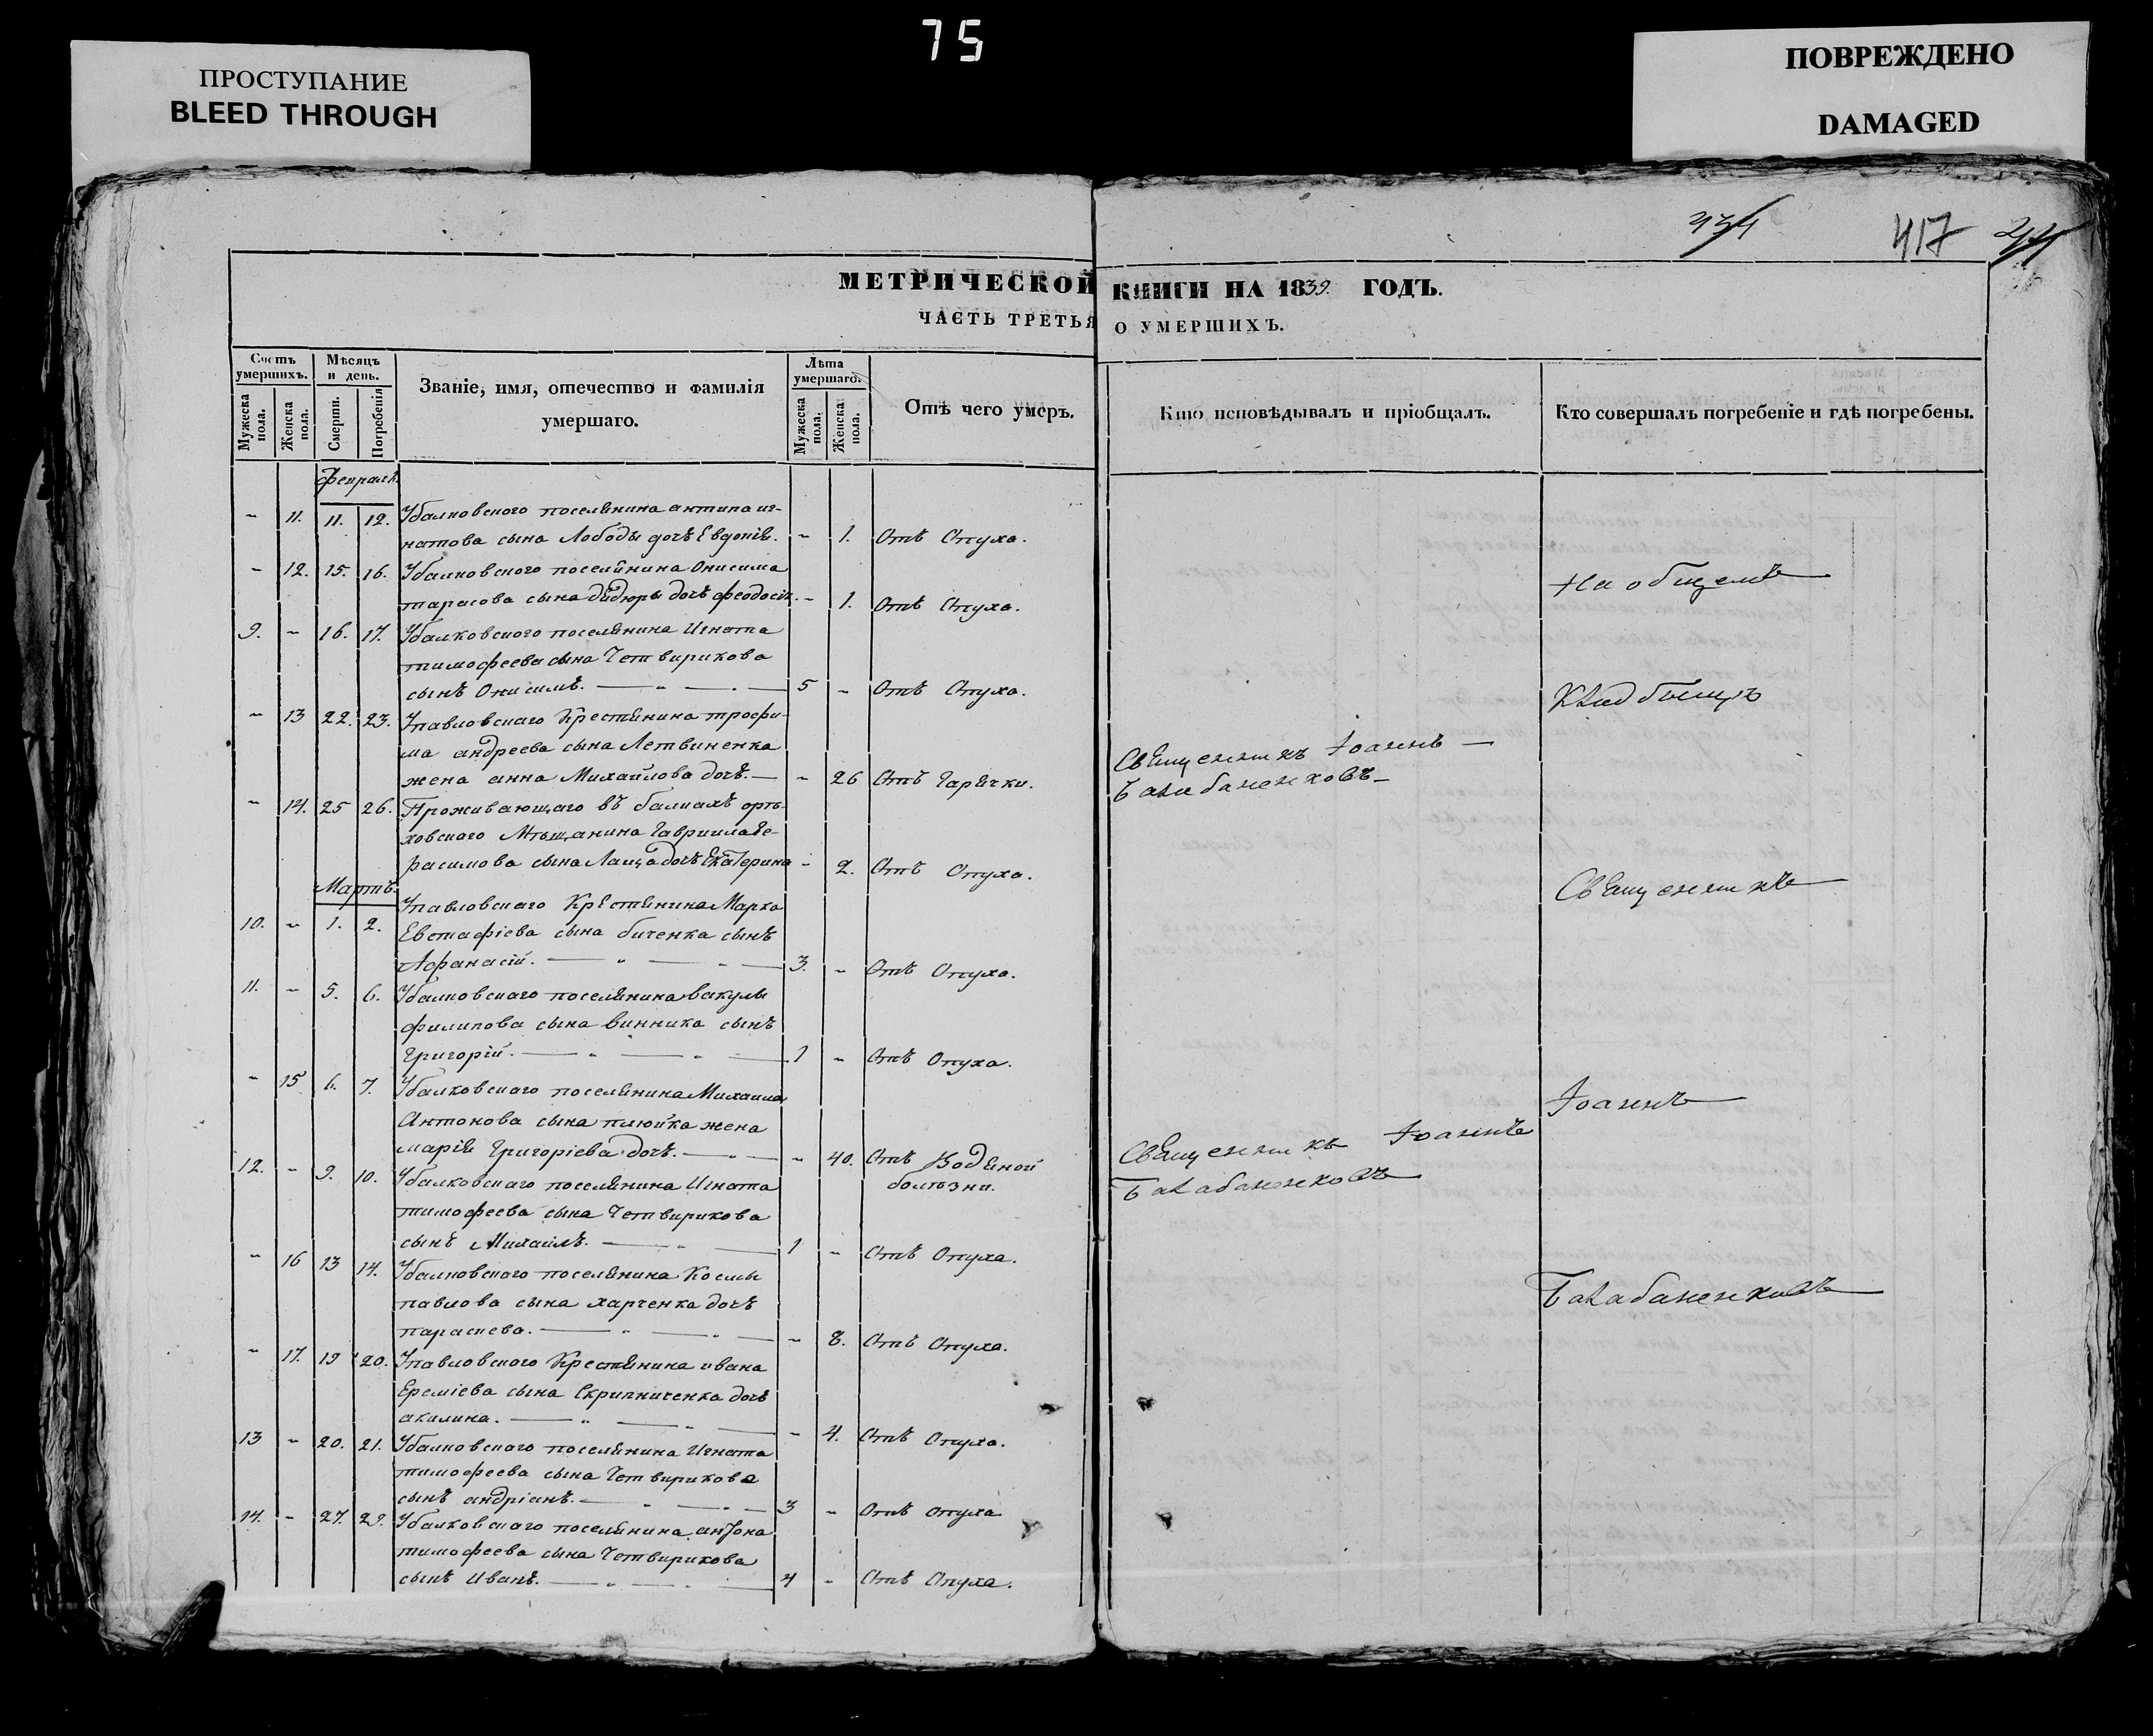 75
ПРОСТУПАНИЕ
BLEED THROUGH
ПОВРЕЖДЕНО
DAMAGED
417
МЕТРИЧЕСКОЙ КНИГИ НА 1839. ГОДЪ.
ЧАСТЬ ТРЕТЬЯ О УМЕРШИХЪ.
Счетъ умершихъ.
Мужеска пола.
Женска пола.
Мѣсяцъ и день.
Смерти.
Погребенія
Званіе, имя, отечество и фамилія
умершаго.
Лѣта умершаго.
Мужеска пола.
Женска пола.
Отъ чего умеръ.
Кто исповѣдывалъ и пріобщалъ.
Кто совершалъ погребеніе и гдѣ погребены.
Февраль
11. 11. 12. Убалковского поселянина антипа иг-
натова сына Лободы дочь Евдокія. 1. Отъ Опуха.
12. 15. 16. Убалковского поселянина Онисима
тарасова сына дочь феодосія. 1. Отъ Опуха.
На общемъ
9. 16. 17. Убалковского поселянина Игната
тимофеева сына Четвирикова
сынъ Онисимъ. 5 Отъ Опуха.
Кладбищѣ
13 22. 23. Упавловскаго Крестянина трофи-
ма андреева сына Летвиненка
жена анна Михайлова дочь. 26 Отъ Гарячки.
Священникъ Іоаннъ
14. 25 26. Проживающаго въ балкахъ орѣ-
ховского Мѣщанина Гавриила Ге-
расимова сына дочь Екатерина 2. Отъ Опуха.
Священникъ
Мартъ.
10. 1. 2. Упавловскаго Крестянина Марка
Евстафіева сына биченка сынъ
Афанасій. 3. Отъ Опуха.
11. 5. 6. Убалковскаго поселянина вакулы
филипова сына винника сынъ
Григорій. 1 Отъ Опуха.
15 6. 7. Убалковскаго поселянина Михаила
Антонова сына жена
марія Григоріева дочь. 40. Отъ Водяной
болѣзни.
Священникъ Іоаннъ
Іоаннъ
12. 9. 10. Убалковскаго поселянина Игната
тимофеева сына Четвирикова
сынъ Михаилъ. 1 Отъ Опуха.
16 13 14. Убалковского поселянина Космы
павлова сына харченка дочь
параскева. 8. Отъ Опуха.
17. 19 20. Упавловского Крестянина ивана
Ереміева сына Скрипниченка дочь
акилина. 4. Отъ Опуха.
13 20. 21. Убалковского поселянина Игната
тимофеева сына Четвирикова
сынъ андріанъ. 3 Отъ опуха
14. 27. Убалковскаго поселянина антона
тимофеева сына Четвирикова
сынъ Иванъ. 4 Отъ Опуха.